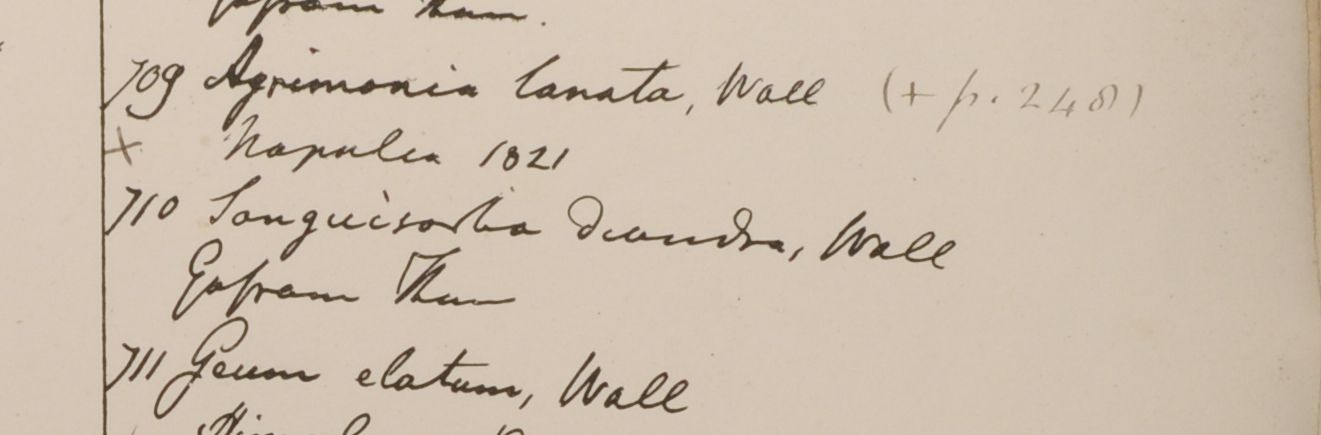 709 Agrimonia lanata, Wall (+ p. 248)
+ Napalia 1821
710 Sanguisorba diandra, Wall
711 Geum elatum, Wall